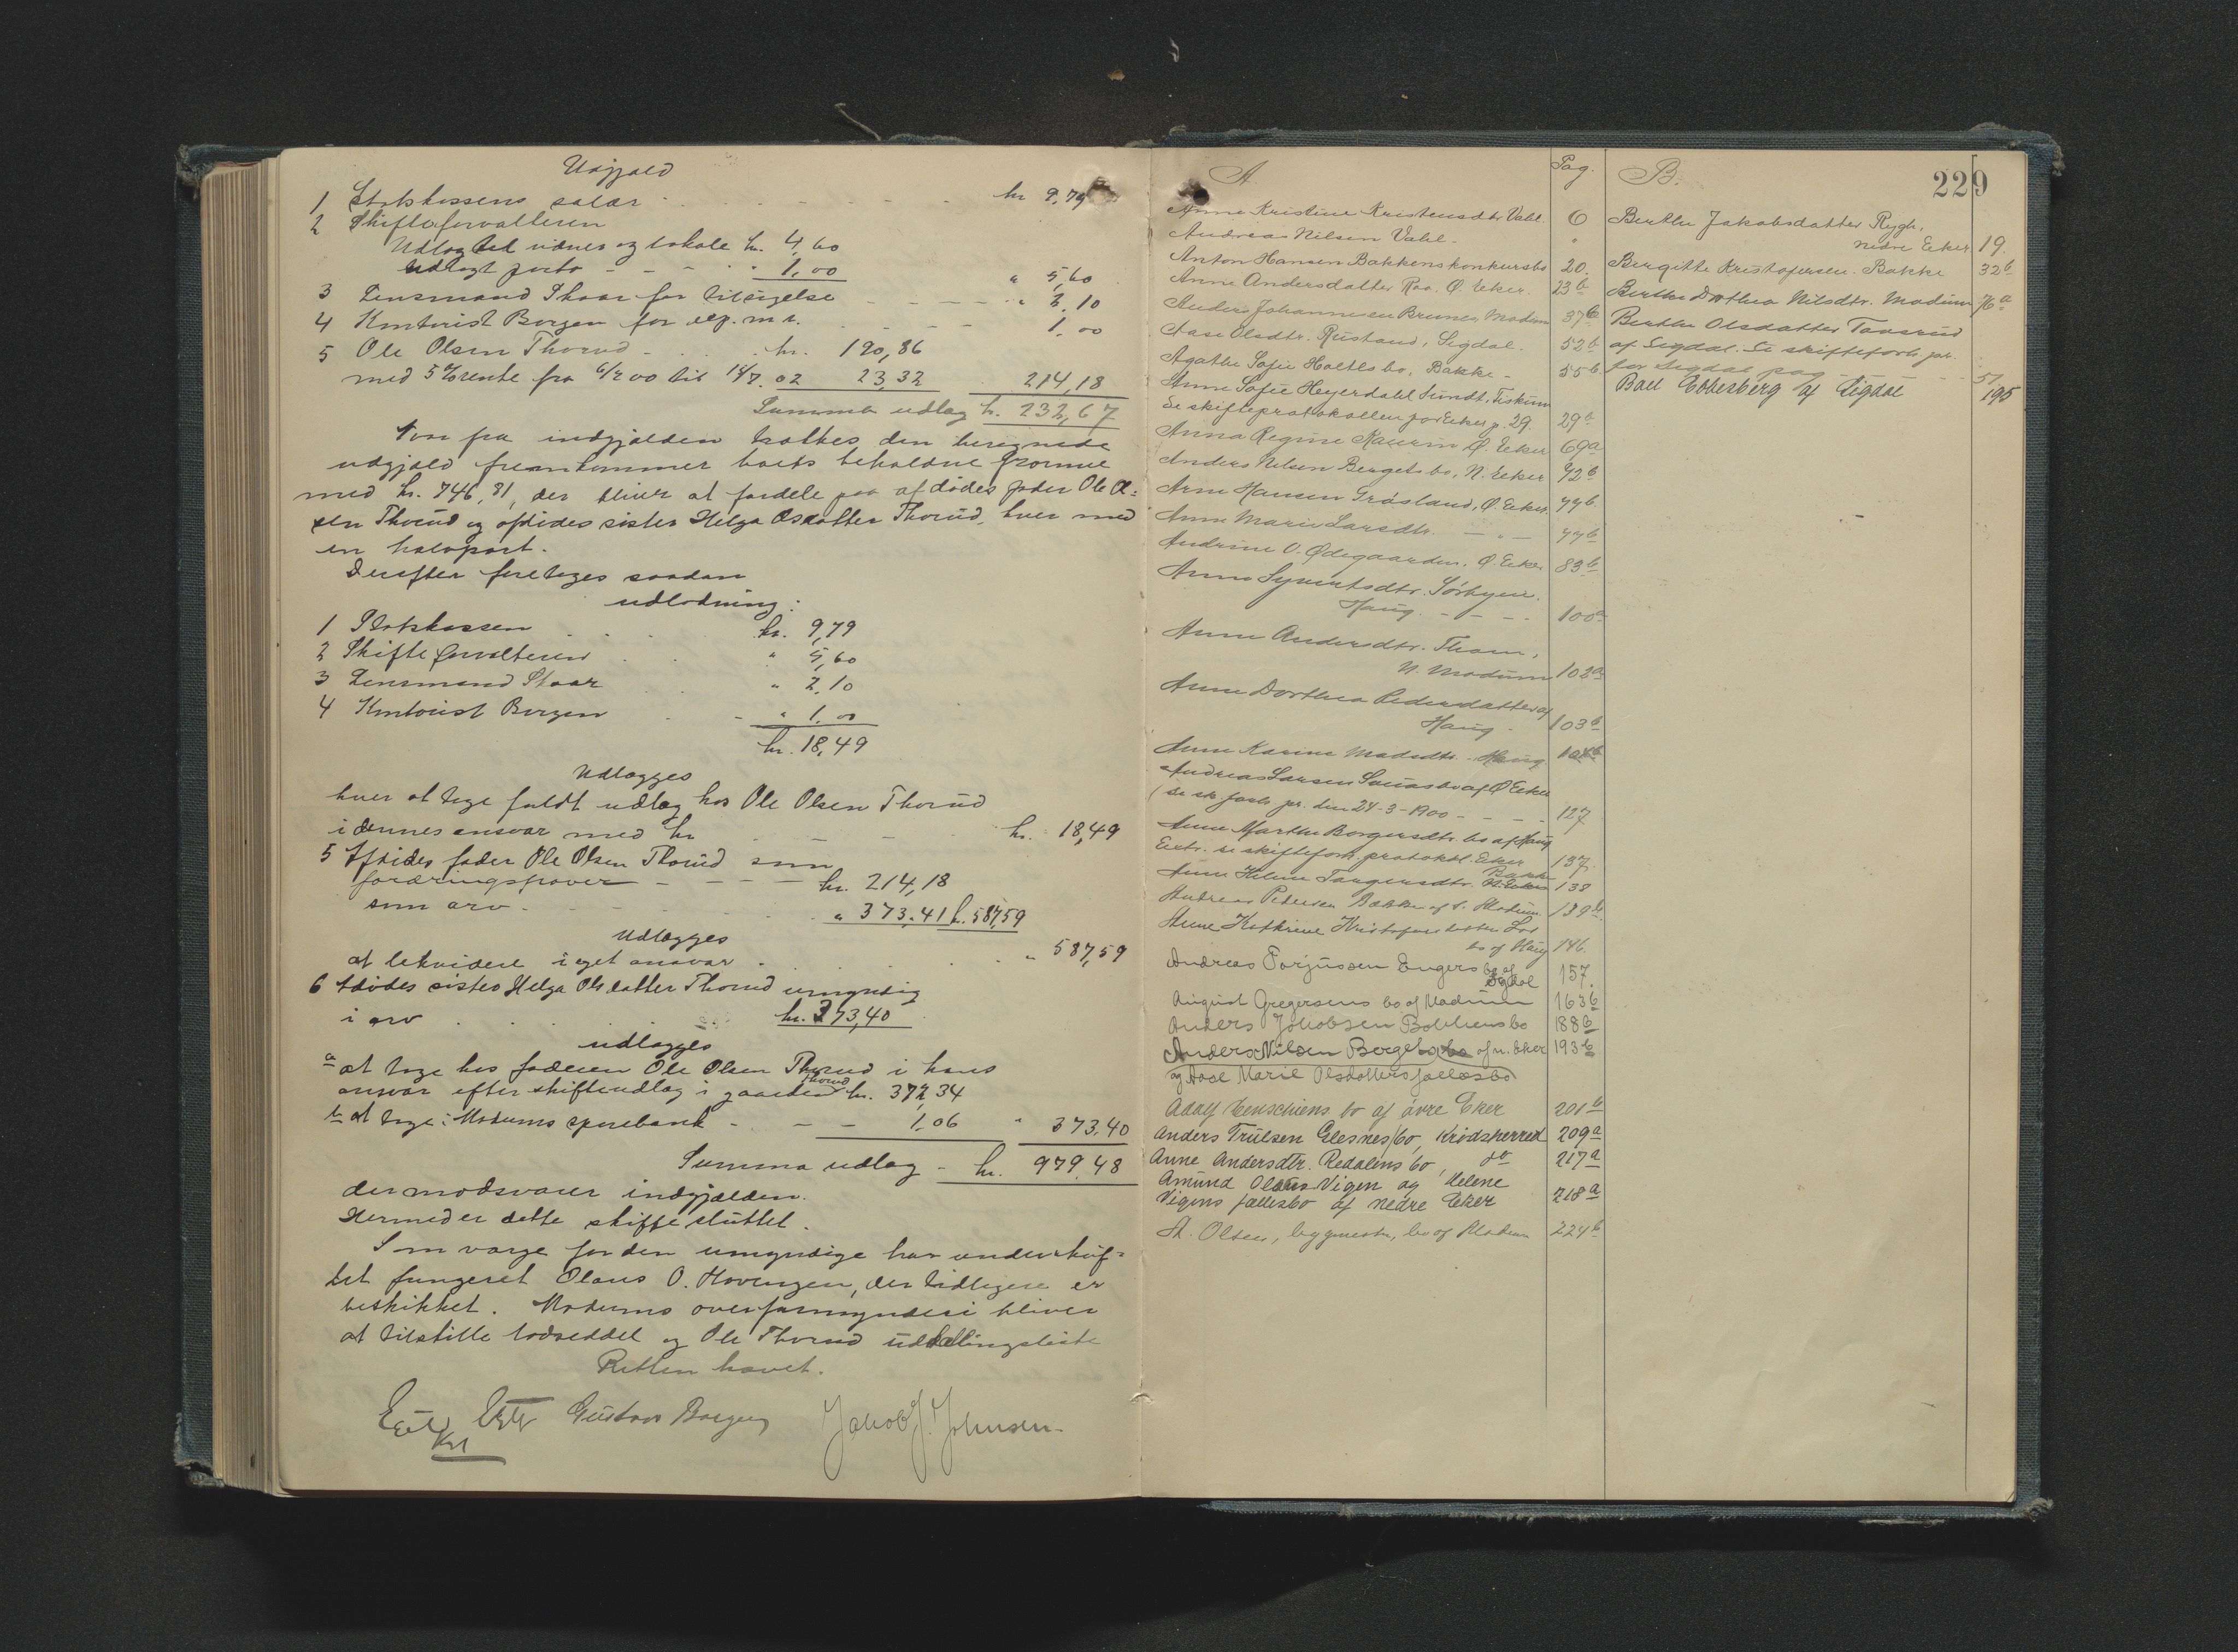 Udgjæld
1 Statskassens salær - - - - kr 9,79
2 Skifteforvalteren
Udlagt til vidner og lokale kr. 4,60
udlagt porto - - - " 1,00 " 5,60
3 Lensmand Skaar for tilsigelse - - - " 2,10
4 Kontorist Borgen for exp. m. v. - - - 1,00
5 Ole Olsen Thorud - - kr. 190,86
med 5% rente fra 6/2 00 til 14/7. 02 23,32 214,18
Summa udlæg kr. 232,67
Naar fra indgjælden trækkes den beregnede
udgjæld fremkommer boets beholdne formue
med kr. 746,81, der bliver at fordele paa afdødes fader Ole Ol=
sen Thorud og afdødes søster Helga Olsdatter Thorud, hver med
en halvpart.
Derefter foretoges saadan
udlodning:
1 Statskassen - - - kr. 9,79
2 Skifteforvalteren - - " 5,60
3 Lensmand Skaar " 2,10
4 Kontorist Borgen - - " 1,00
kr. 18,49
Udlægges
hver at tage fuldt udlæg hos Ole Olsen Thorud
i dennes ansvar med kr - - - kr. 18,49
5 Afdødes fader Ole Olsen Thorud som
fordringshaver - - - - kr. 214,18
som arv - - - - " 373,41 kr. 587,59
Udlægges
at likvidere i eget ansvar - - - " 587,59
6 Afdødes søster Helga Olsdatter Thorud umyndig
i arv - - - kr. 373,40
udlægges
a at tage hos faderen Ole Olsen Thorud i hans
ansvar efter skifteudlæg i gaarden Thorud kr. 372,34
b at tage i Modums sparebank - - - 1,06 " 373,40
Summa udlæg - kr. 979,48
der modsvarer indgjælden.
Hermed er dette skifte sluttet.
Som værge for den umyndige har under skif=
tet fungeret Olaus O. Hovengen, der tidligere er
beskikket. Modums overformynderi bliver
at tilstille lodseddel og Ole Thorud uddelingsliste
Retten hævet.
Gustav Borgen Jakob J. Johnsen
A. Pag. B. 229
Anne Kristine Kristensdtr Vahl. 6
Andreas Nilsen Vahl. "
Anton Hansen Bakkens konkursbo 20.
Anne Andersdatter Raa. Ø. Eker. 23b
Anders Johannesen Brunes, Modum 37b
Aase Olsdtr. Rustand, Sigdal. 52b
Agathe Sofie Holtes bo, Bakke - 55b
Anne Sofie Heyerdahl Sundt, Fiskum
Se skifteprotokollen for Eker p. 29. 29b
Anna Regine Kaurin Ø. Eker 69a
Anders Nilsen Bergets bo, N. Eker 72b
Arne Hansen Gråsland, Ø. Eker. 77b
Anne Marie Larsdtr. - " - 77b
Andrine O. Ødegaarden. Ø. Eker 83b
Anne Syvertsdtr. Sørbyeie.
Haug. - - - 100a
Anne Andersdtr. Thom,
N. Modum 102a
Anne Dorthea Pedersdatter af
Haug. 103b
Anne Karine Madsdtr. Haug 104b
Andreas Larsen bo af Ø Eker
(se sk. forh. pr. den 24-3-1900 - - - 127
Anne Marthe Borgersdtr. bo af Haug
Extr. se skifteforh. protokol. Eker 137.
Anne Helene Torgersdtr. Bakke N. Eker 138
Andreas Pedersen Bakke af N. Modum 139b
Anne Kathrine Kristofersdatter
bo af Haug 146.
Andreas Torjussen Engers bo af
Sigdal 157.
August Gregersens bo af Modum 163b
Anders Jakobsen Bakkens bo 188b
Anders Nilsen Bergets bo af n. Eker 193b
og Aase Marie Olsdatters fællesbo
Adolf bo af øvre Eker 201b
Anders Trulsen Glesnes bo, Krødsherred 209a
Anne Andersdtr. Redalens bo, do 217a
Amund Olaus Vigen og Helene
Vigens fællesbo af nedre Eker 218a
A. Olsen, bygmester, bo af Modum 224b
Berthe Jakobsdatter Rygh,
nedre Eker 19.
Bergitte Kristofersen. Bakke 32b
Berthe Dorthea Nilsdtr. Modum 76a
Berthe Olsdatter Tovsrud
af Sigdal. Se skifteforh. pr.
for Sigdal pag - - - 51
Boel Ebbesberg af Sigdal 195